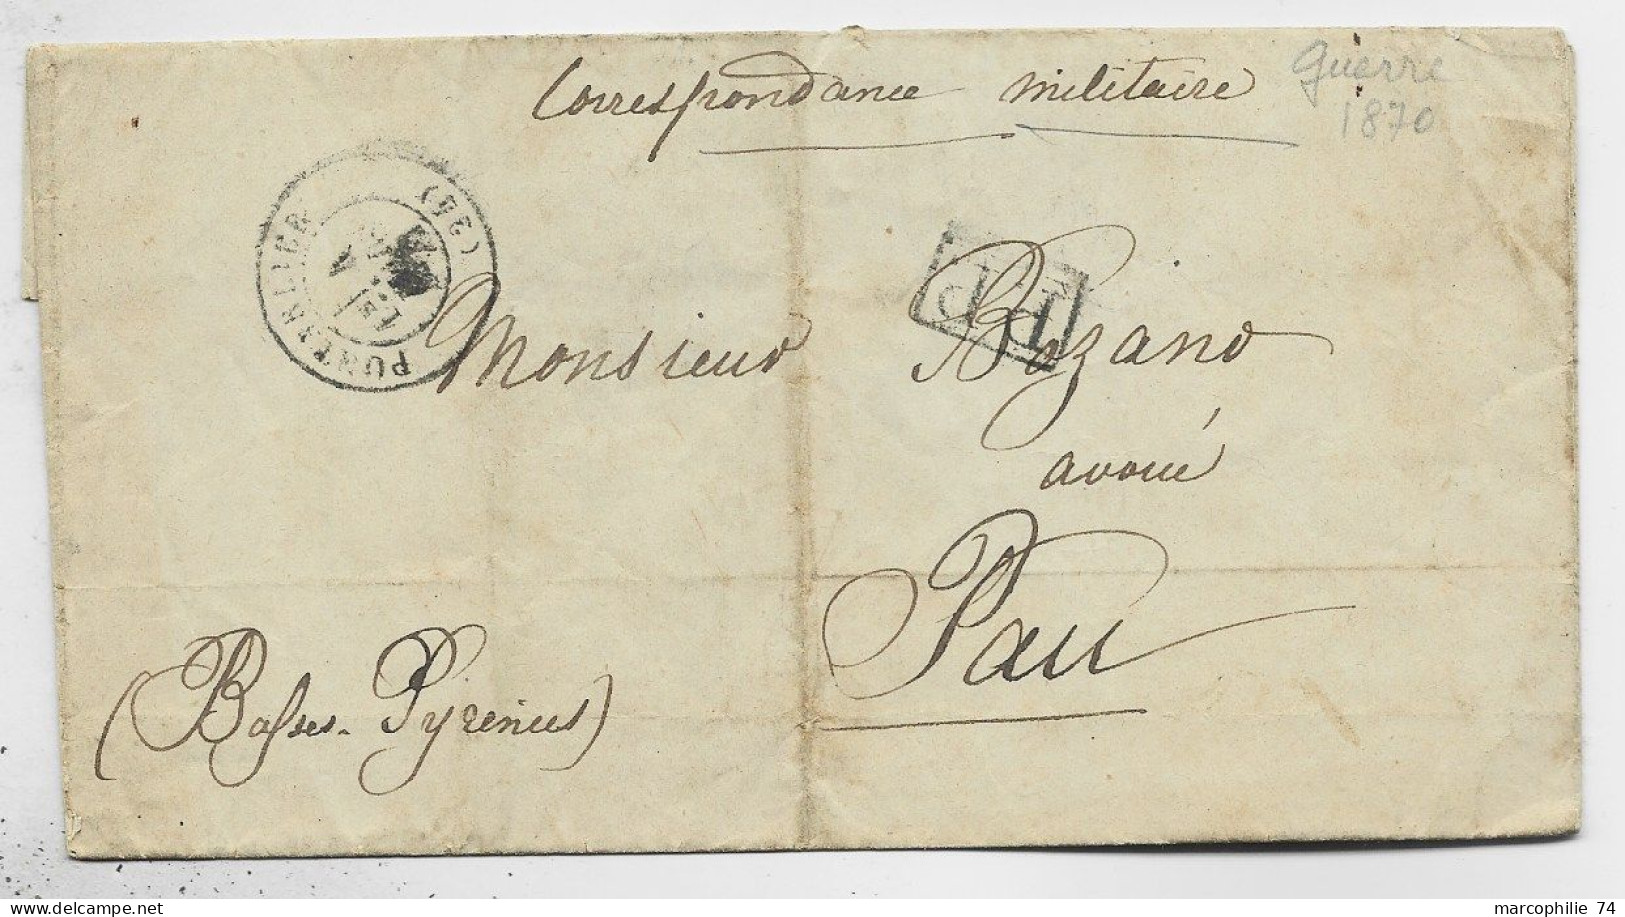 Correspondance militaire
Guerre
1870
PONTARLIER (24)
PD
Monsieur Bozano
avoué
Pau
(Basses-Pyrénées)
marcophilie 74